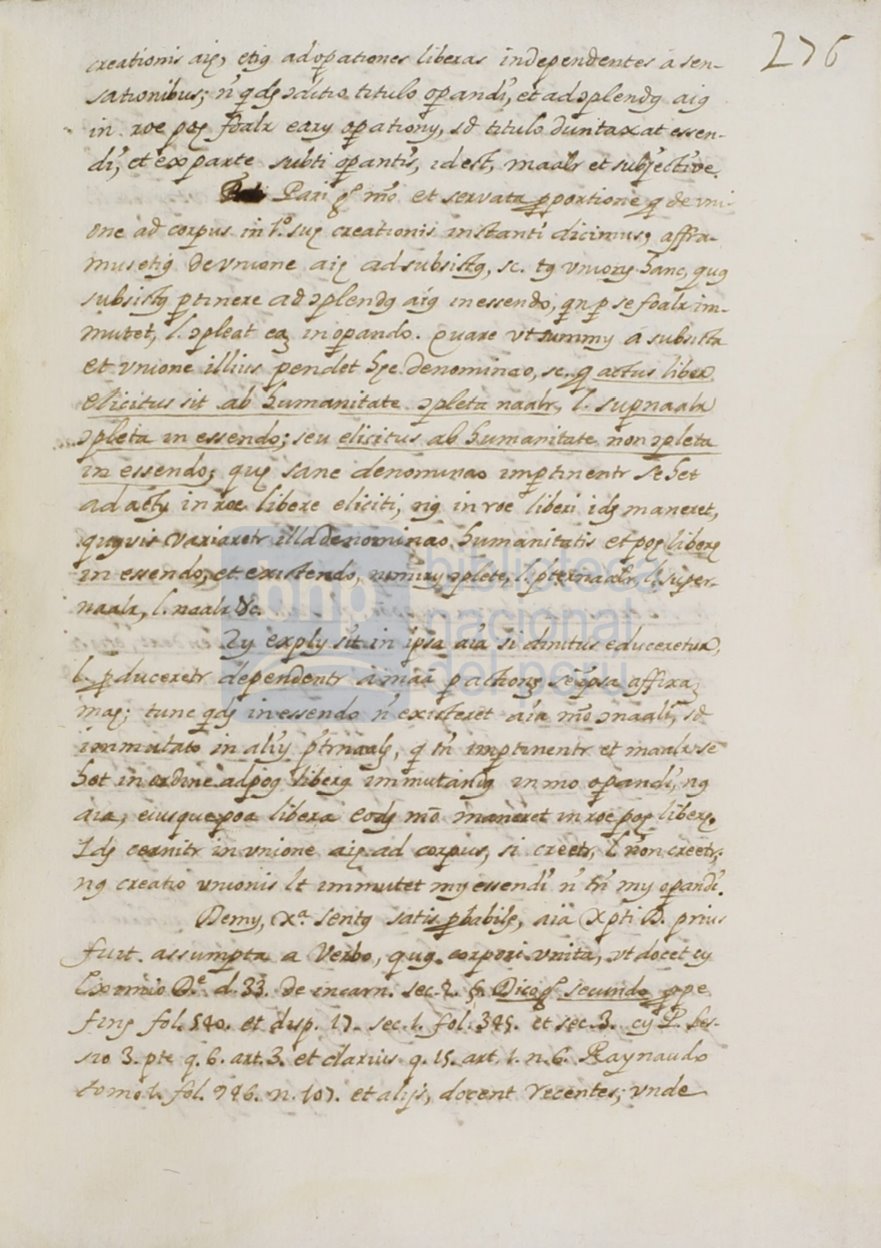 276
creationis aiȩ, etiȝ ad oꝑationes liberas independentes à sen-
sationibus; ñ qdȝ ɔditio titulo oꝑandi, et ad ɔplendȝ aiȝ
in roe poȩ foalr eary oꝑationy, sd titulo duntaxat essen-
di, et ex parte subti oꝑantis, idest, maalr et subjective.
Pari gͦ mo et servata ꝓportione q de vni-
one ad corpus in 1.º suȩ creationis instanti dicimus, affra-
mus etiȝ de vnione aiȩ ad subsistȝ, sc. tȝ vniony hanc, quȝ
subsistȝ ꝑtinere ad ɔplendȝ aiȝ in essendo, qn ꝑ se foalr im-
mutet, l. ɔpleat eaȝ in oꝑando. Quare vt summy à subsista
et vnione illius pendet hȩc denominao, sc. q actus liber
elicitus sit ab humanitate ɔpleta naalr, l. suprnaalr
ɔpleta in essendo; seu elicitus ab humanitate non ɔpleta
in essendo; quȩ sane denominao imꝑtinentr se het
ad acty in roe libere eliciti, nȝ in roe liberi idȝ maneret,
quȝvis variaretr illa denominao humanitatis et poȩ liberȩ
in essendo, et existendo, nimiry ɔplete, l. pternaalr, l. super-
naalr, l. naalr &c.
Ty exply sit in ipsa aia si divitus educeretur,
l. ꝓduceretr dependentr à maa ꝑ actionȝ se ipsa affixaȝ
maȩ; tunc qdȝ in essendo ñ existeret aia mo ɔnaali, sd
immutato in aliy ptrnaalȝ, q tñ imꝑtinentr et maalr se
het in ordine ad poȝ liberȝ immutandȝ in mo oꝑandi, nȝ
aia, eiusque poa libera eodȝ mo maneret in roe poȩ liberȩ.
Idȝ cernitr in vnione aiȩ ad corpus, si creetr, l. non creetr,
nȝ creatio vnionis lt immutet my essendi ñ tñ my oꝑandi.
Demy, xª. sentȝ satis ꝓbabilȝ, aia Xpti D. prius
fuit assumpta a Verbo, quȝ corpori vnita, vt docet cy
Eximio D.e d. 33. de incarn. sec. 2. §. Dico gͦ secundo ꝓpe
finȝ fol. 540. et disp. 17. sec. 1. fol. 345. et sec. 3. cy P. Bes-
sio 3. pte q. 6. art. 3. et clarius q. 15. art. 1. n. 6. Raynaudo
tomo 1. fol. 746. n. 107. et alijs, docent recentes; vnde
biblioteca
nacional
del perú
bnp